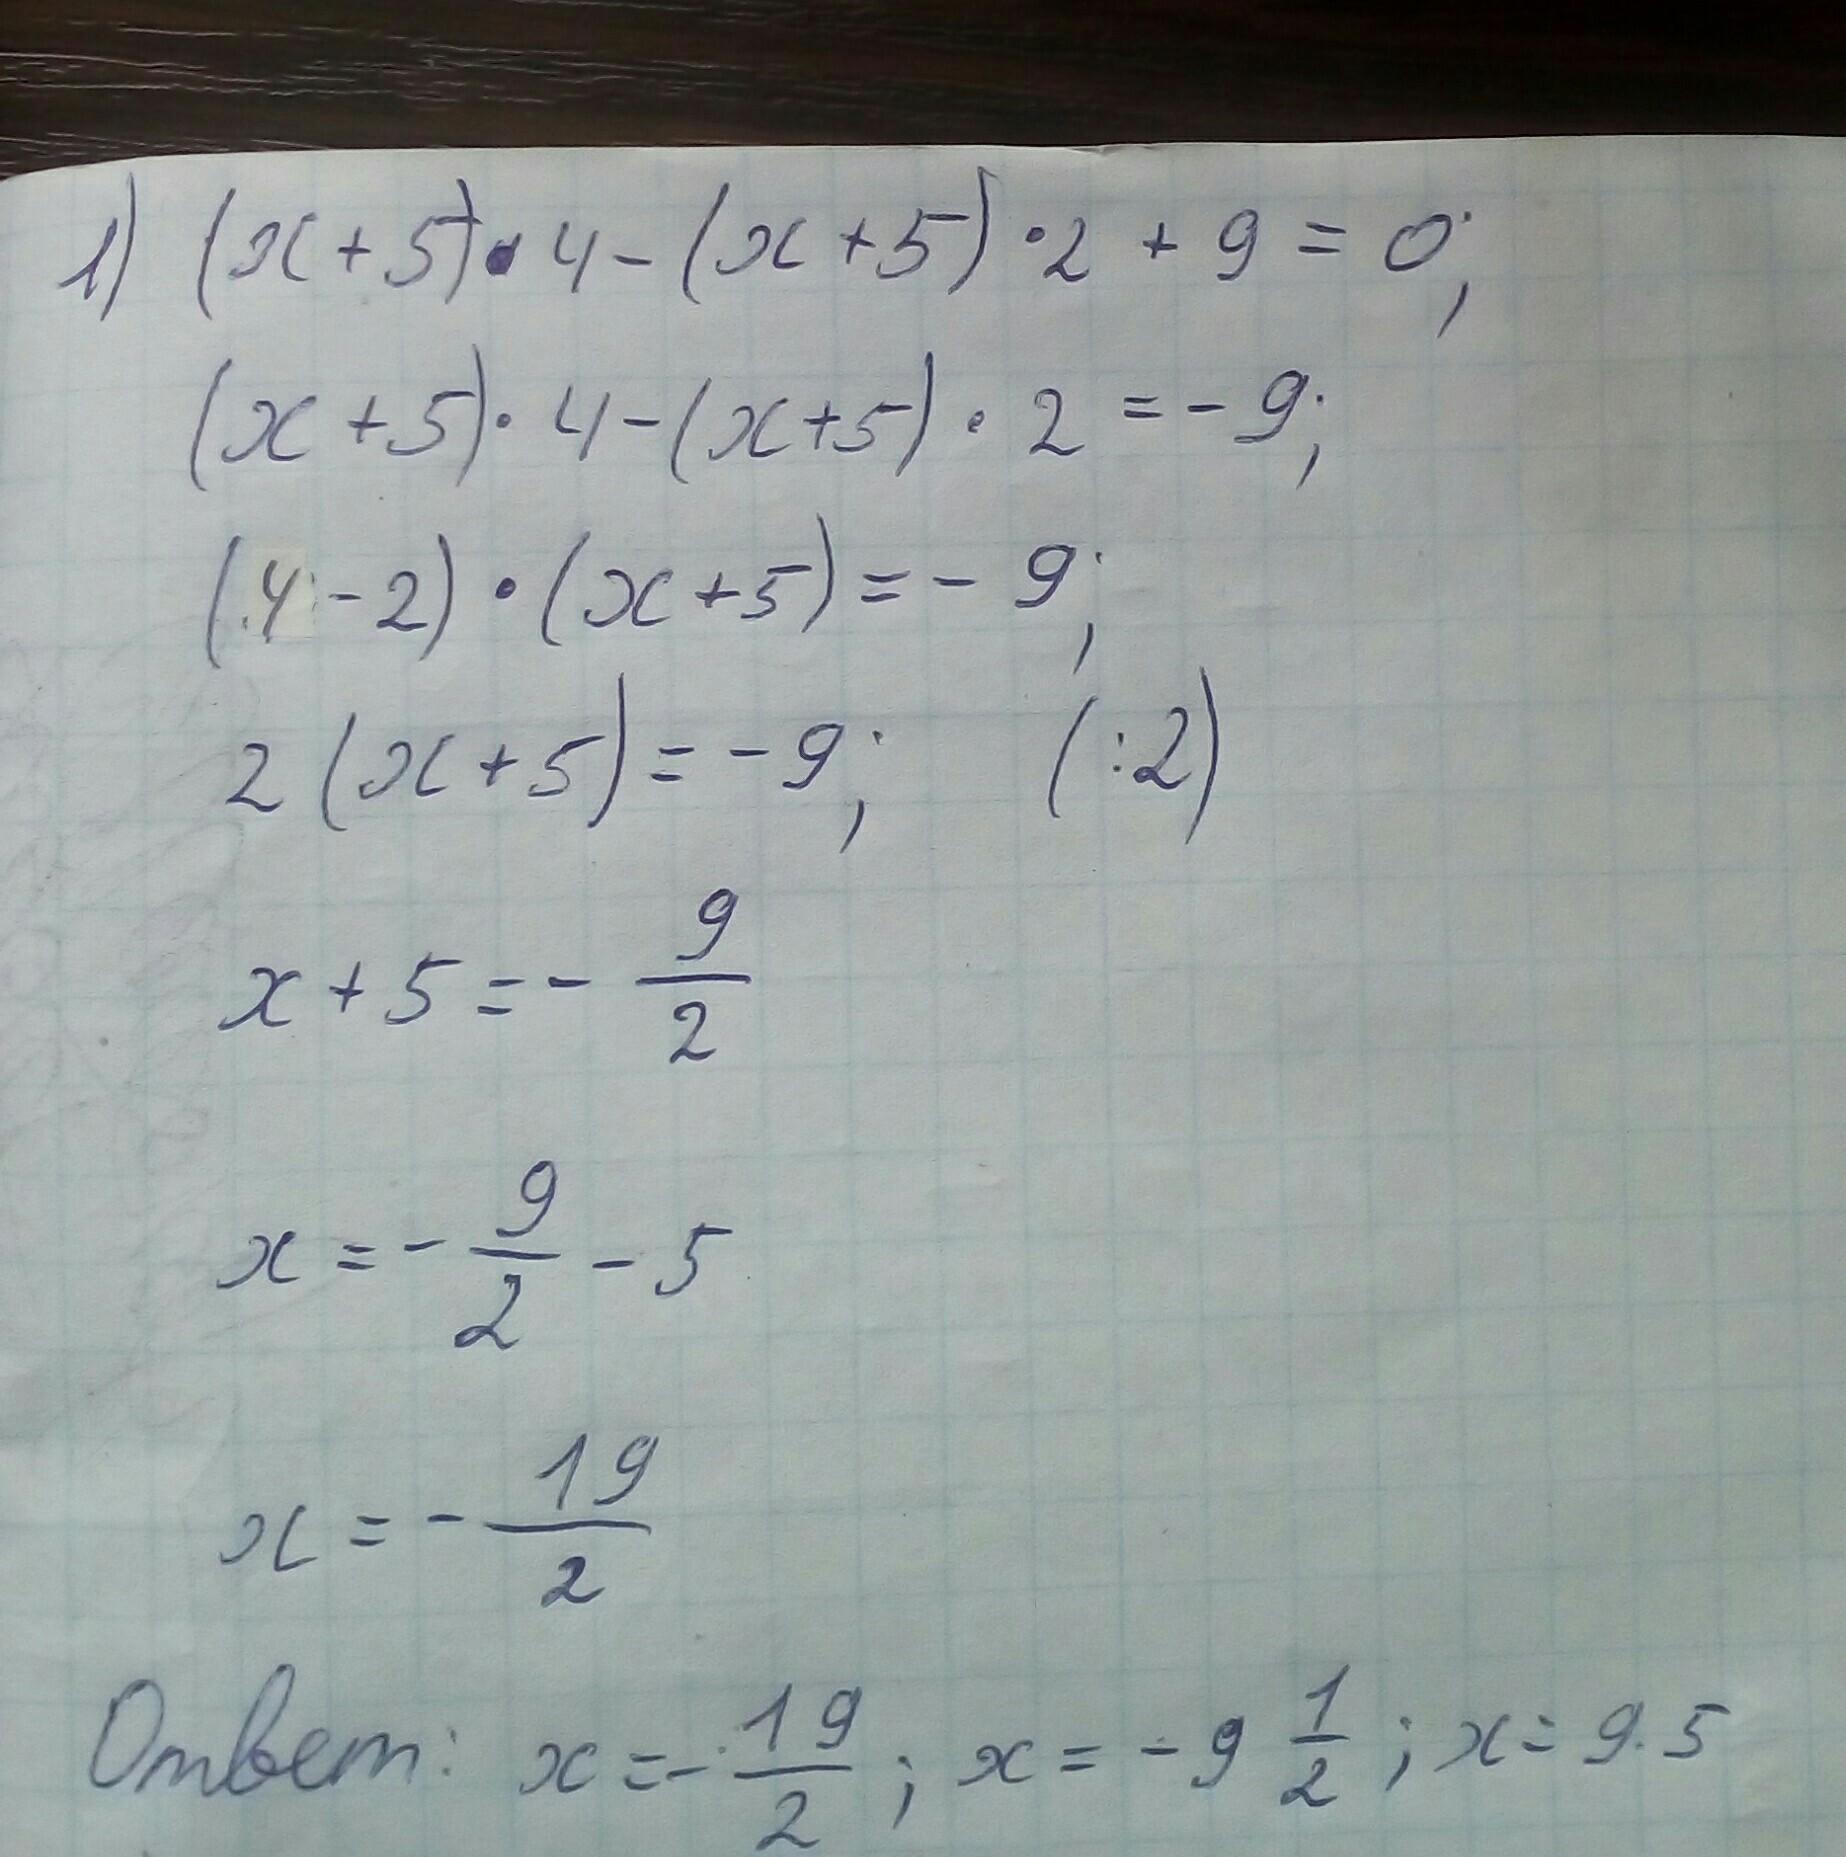 1) (x+5)·4-(x+5)·2+9=0;
(x+5)·4-(x+5)·2=-9;
(4-2)·(x+5)=-9;
2(x+5)=-9; (:2)
x+5=-9/2
x=-9/2-5
x=-19/2
Ответ: x=-19/2; x=-9 1/2; x=9.5